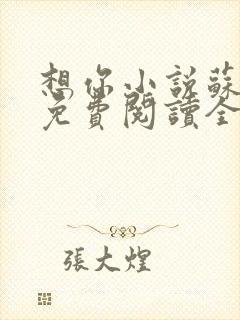 想你小説蘇
免費閱讀全
張大煌